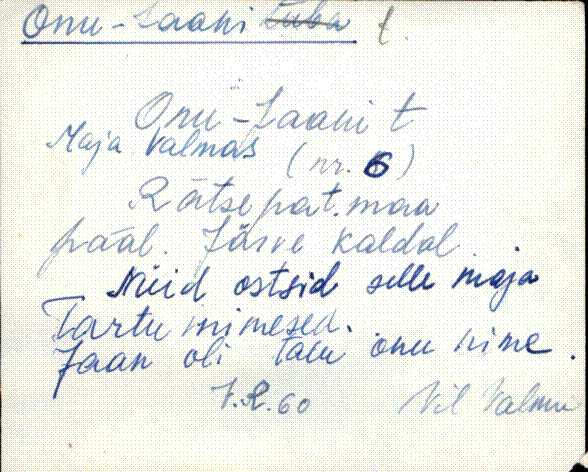 Onu-Jaani tuba t.
Onu-Jaani t
Maja Valmas (nr. 6)
Rätsepat. maa
pääl. Järve kaldal.
Nüid ostsid selle maja
Tartu inimesed.
Jaan oli talu onu nime.
J.R. 60 Vil Valmu